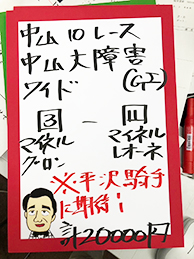 中山10レース
中山大障害
ワイド (GI)
3 - 11
マイネル マイネル
クーロン レオーネ
※平沢騎手
に期待!
計20000円